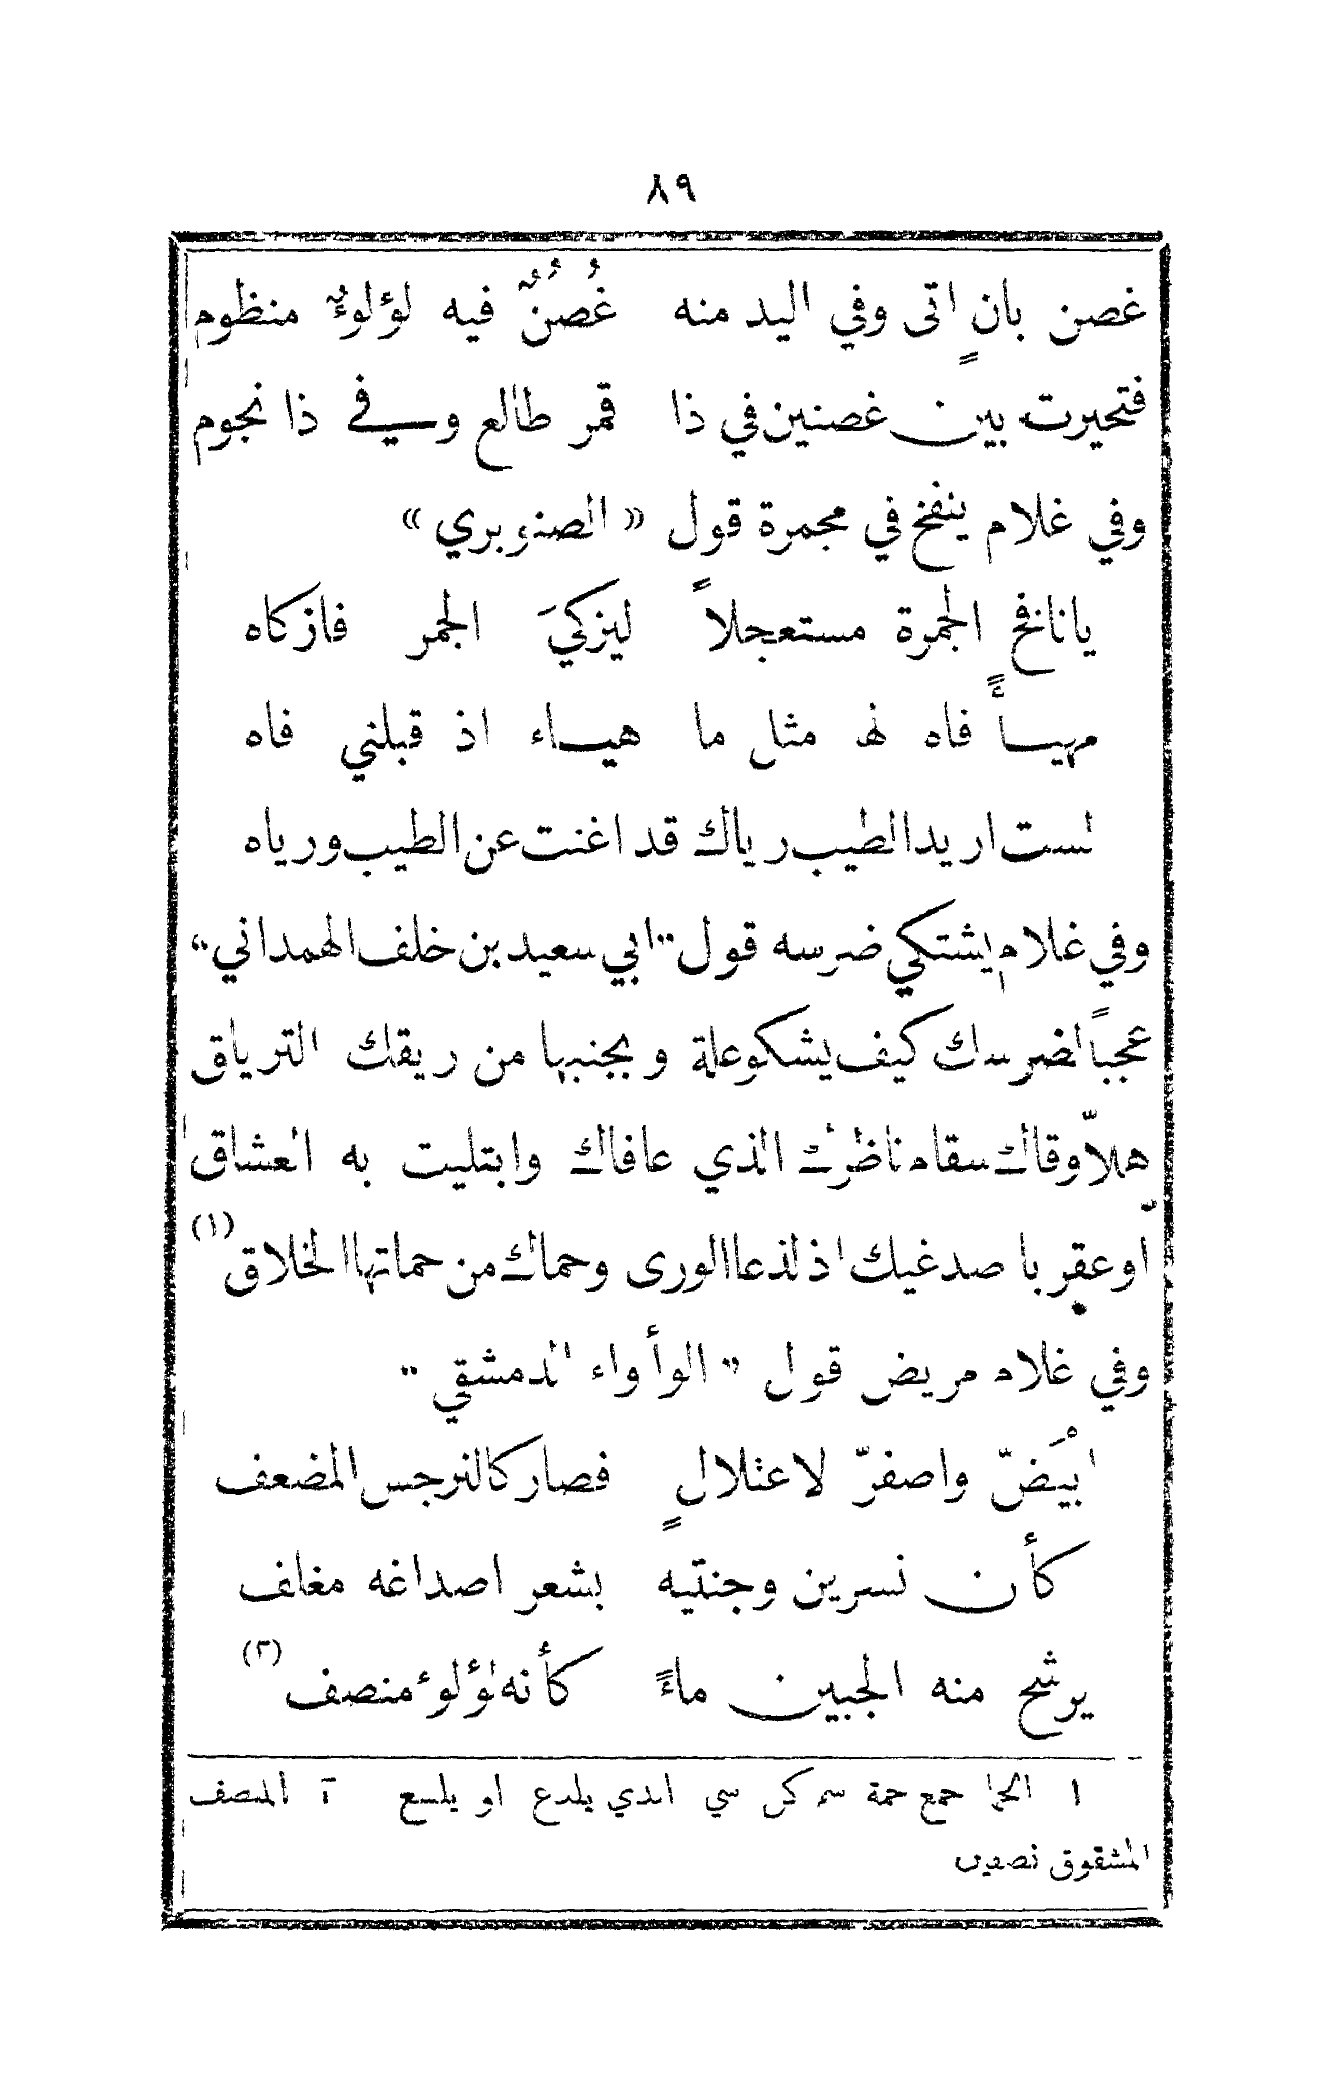 ٨٩
غصن بانٍ اتى وفي اليد منه غُصُنٌ فيه لؤلوءٌ منظوم
فتحيرت بين غصنين في ذا قمر طالع وفي ذا نجوم
وفي غلام ينفخ في مجمرة قول « الصنوبري »
يا نافخ الجمرة مستعجلاً ليزكيَ الجمر فازكاه
مهيـأً فاه لها مثل ما هيـاء اذ قبلني فاه
لست اريد الطيب رياك قد اغنت عن الطيب ورياه
وفي غلام يشتكي ضرسه قول "ابي سعيد بن خلف الهمداني"
عجباً لضرسك كيف يشكو علة وبجنبها من ريقك الترياق
هلاّ وقاك سقام ناظرك الذي عافاك وابتليت به العشاق
او عقربا صدغيك اذ لذعا الورى وحماك من حماتها الخلاق (١)
وفي غلام مريض قول " الوأواء الدمشقي "
ابْيَضّ واصفرّ لاعتلالٍ فصار كالنرجس المضعف
كأن نسرين وجنتيه بشعر اصداغه مغلف
يرشح منه الجبين ماءً كأنه لؤلوء منصف (٢)
١ الحما جمع حمة سم كل شي الذي يلدع او يلسع ٢ المنصف
المشقوق نصفين